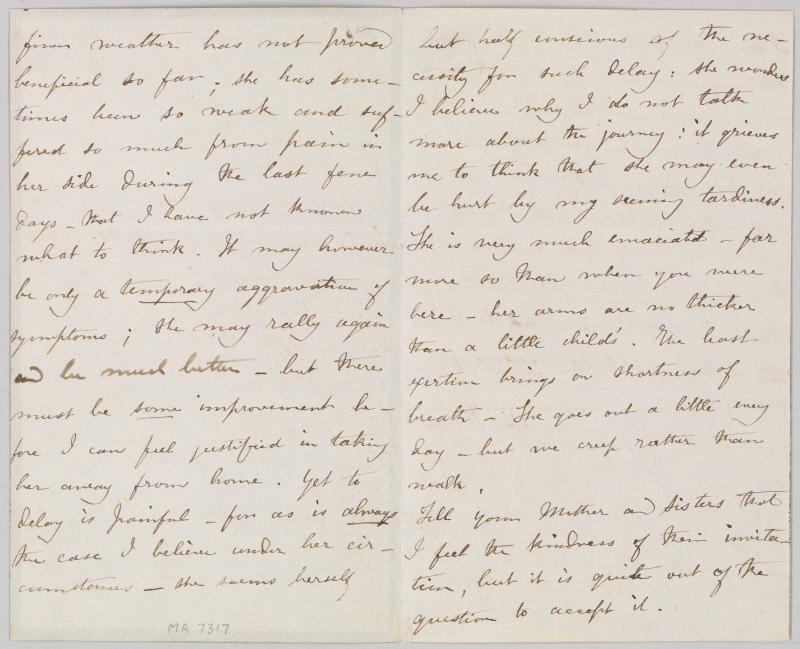 finer weather has not proved
beneficial so far; she has some-
times been so weak and suf-
fered so much from pain in
her side during the last few
days - that I have not known
what to think. It may however
be only a temporary aggravation of
symptoms; she may rally again
and be much better - but there
must be some improvement be-
fore I can feel justified in taking
her away from home. Yet to
delay is painful - for as is always
the case I believe under her cir-
cumstances - she seems herself
MA 7317
but half conscious of the ne-
cessity for such delay: she wonders
I believe why I do not talk
more about the journey: it grieves
me to think that she may even
be hurt by my seeming tardiness.
She is very much emaciated - far
more so than when you were
here - her arms are no thicker
than a little child's. The least
exertion brings on shortness of
breath - She goes out a little every
day - but we creep rather than
walk.
Tell your Mother and Sisters that
I feel the kindness of their invita-
tion, but it is quite out of the
question to accept it.